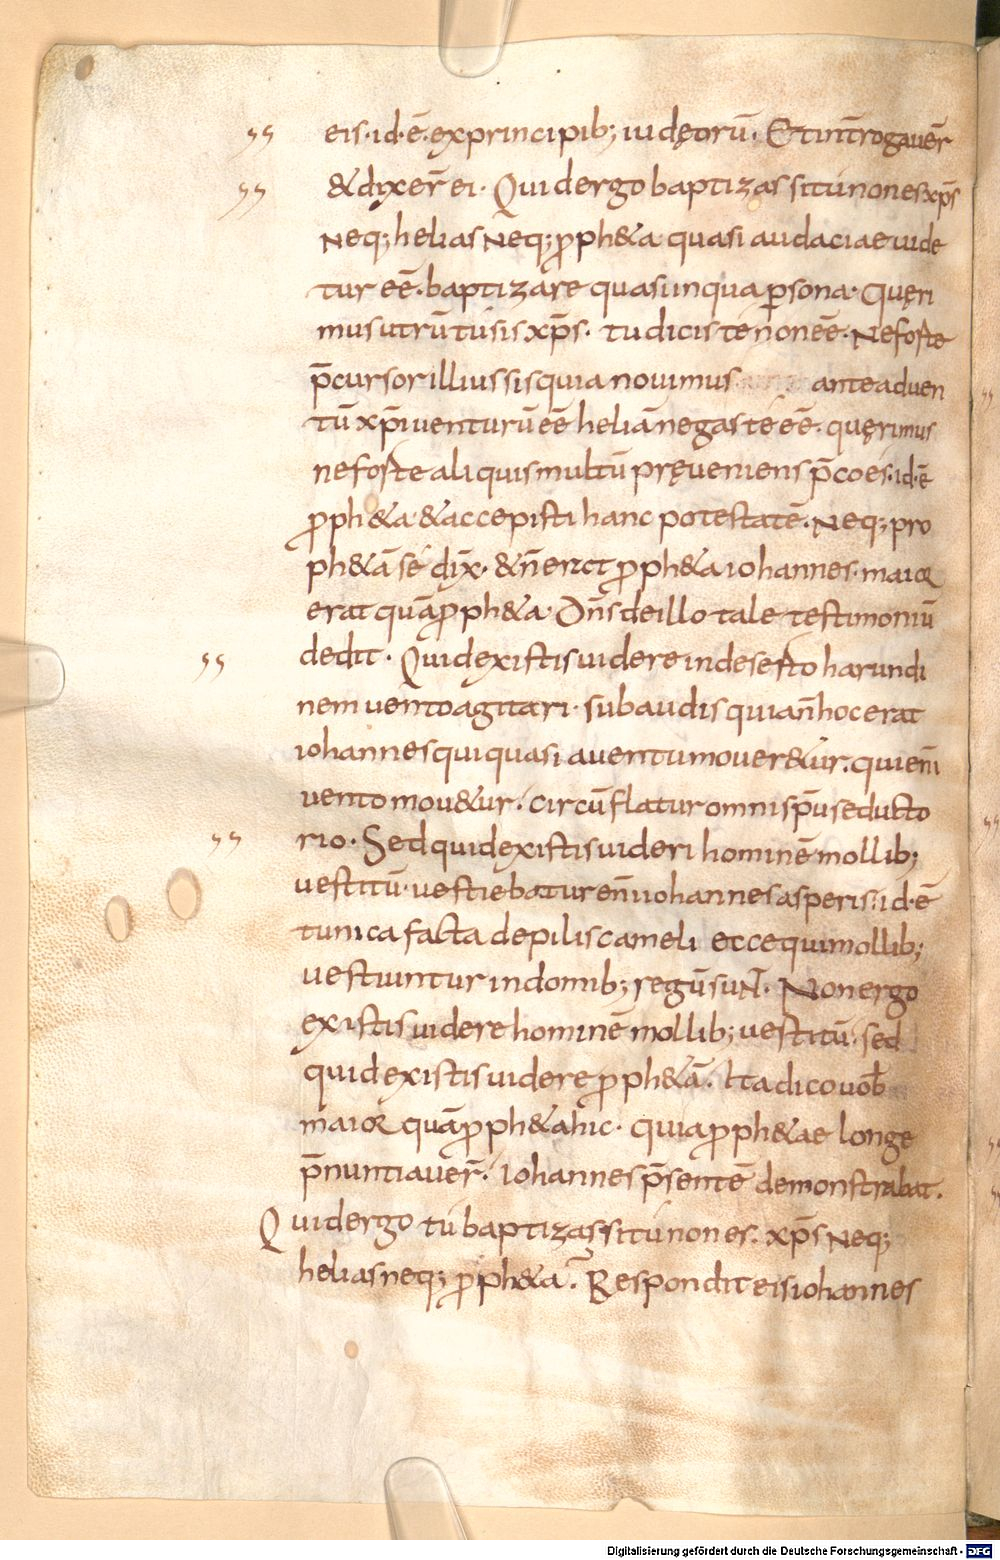 eis·id·ē·exprincipib; iudęorū· Etint̄rogauer̄
&dixer̄ ei· Quid ergo baptizas si tu non es xp̄s
Neq; helias Neq; ꝓph&a quasi audaciae uide
tur eē·baptizare quasi inqua ꝑsona· Quęri
mus utrū tu sis xp̄s· tu dicis te non eē· Ne forte
p̄cursor illius sis quia nouimus ante aduen
tū xp̄i uenturū eē heliā negas te eē· quęrimus
ne forte aliquis multū pręueniens p̄coēs·id·ē
ꝓph&a &accepisti hanc potestatē· Neq; pro
ph&ā sé dix̄· &n̄ erat ꝓph&a iohannes·maior
erat quā ꝓph&a· Dn̄s de illo tale testimoniū
dedit· Quid existis uidere in deserto harundi
nem uento agitari· subaudis quia n̄ hoc erat
iohannes qui quasi a uentu mouer&ur· qui enī
uento mou&ur· circūflatur omni sp̄u seducto
rio· Sed quid existis uideri hominē mollib;
uestitū· uestiebatur enī iohannes asperis·id·ē
tunica facta de pilis cameli ecce qui mollib;
uestiuntur in domib; regū sunt̄· Non ergo
existis uidere hominē mollib; uestitū· sed
quid existis uidere ꝓph&ā· Ita dico uob̄
maior quā ꝓph&a hic· quia ꝓph&ae longe
p̄nuntiauer̄· iohannes p̄sentē demonstrabat·
Quid ergo tu baptizas si tu non es· xp̄s Neq;
helias neq; ꝓph&a· Respondit eis iohannes
Digitalisierung gefördert durch die Deutsche Forschungsgemeinschaft - DFG